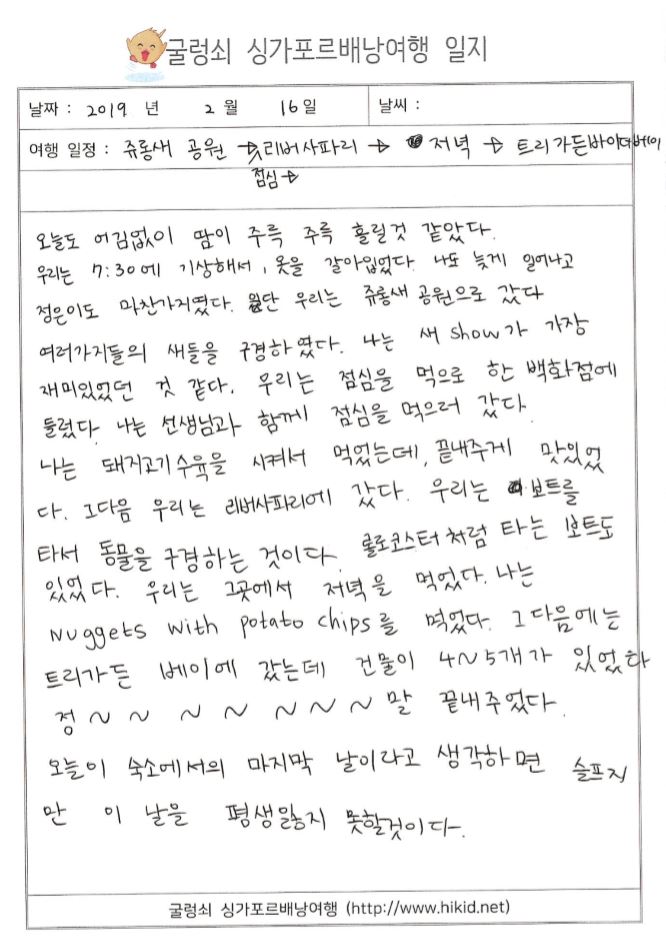 굴렁쇠 싱가포르배낭여행 일지
날짜 : 2019 년 2 월 16 일 날씨 :
여행 일정 : 쥬롱새 공원 → 리버사파리 → 저녁 → 트리가든바이더베이
점심 →
오늘도 어김없이 땀이 주륵 주륵 흘릴것 같았다.
우리는 7:30에 기상해서, 옷을 갈아입었다. 나도 늦게 일어나고
정은이도 마찬가지였다. 일단 우리는 쥬롱새 공원으로 갔다
여러가지들의 새들을 구경하였다. 나는 새 show가 가장
재미있었던 것 같다. 우리는 점심을 먹으로 한 백화점에
들렸다. 나는 선생님과 함께 점심을 먹으러 갔다.
나는 돼지고기수육을 시켜서 먹었는데, 끝내주게 맛있었
다. 그다음 우리는 리버사파리에 갔다. 우리는 보트를
타서 동물을 구경하는 것이다. 롤로코스터처럼 타는 보트도
있었다. 우리는 그곳에서 저녁을 먹었다. 나는
Nuggets with potato chips를 먹었다. 그다음에는
트리가든 베이에 갔는데 건물이 4~5개가 있었다
정 ~ ~ ~ ~ ~ ~ ~ 말 끝내주었다.
오늘이 숙소에서의 마지막 날이라고 생각하면 슬프지
만 이 날을 평생잃지 못할것이다.
굴렁쇠 싱가포르배낭여행 (http://www.hikid.net)